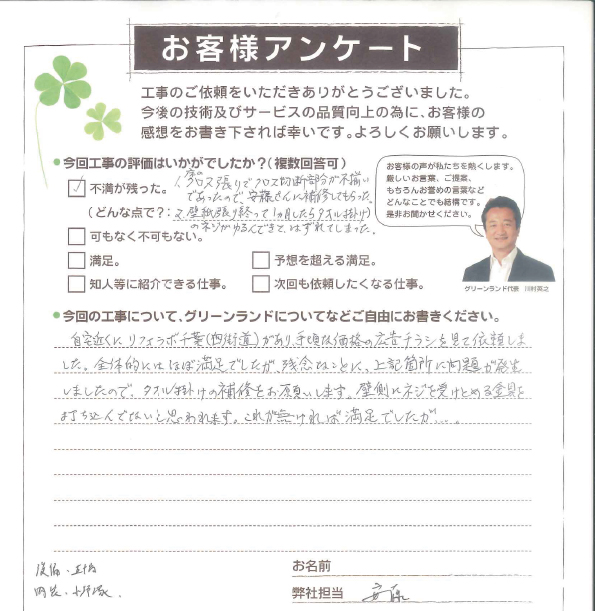 お客様アンケート
工事のご依頼をいただきありがとうございました。
今後の技術及びサービスの品質向上の為に、お客様の
感想をお書き下されば幸いです。よろしくお願いします。
今回工事の評価はいかがでしたか?(複数回答可)
不満が残った。
1. 床のクロス張りでクロス切断部分が不揃い
であったので、安藤さんに補修してもらった。
(どんな点で?:2. 壁紙張り終って1ヵ月したらタオル掛け)
のネジがゆるんできて、はずれてしまった。
可もなく不可もない。
満足。
予想を超える満足。
知人等に紹介できる仕事。
次回も依頼したくなる仕事。
お客様の声が私たちを熱くします。
厳しいお言葉、ご提案、
もちろんお誉めの言葉など
どんなことでも結構です。
是非お聞かせください。
グリーンランド代表
今回の工事について、グリーンランドについてなどご自由にお書きください。
自宅近くにリフォラボ千葉(四街道)があり、手頃な価格の広告チラシを見て依頼しま
した。全体的にはほぼ満足でしたが、残念なことに、上記箇所に問題が発生
しましたので、タオル掛けの補修をお願いします。壁側にネジを受けとめる金具を
打ち込んでないと思われます。これが無ければ満足でしたが....。
お名前
弊社担当 安藤